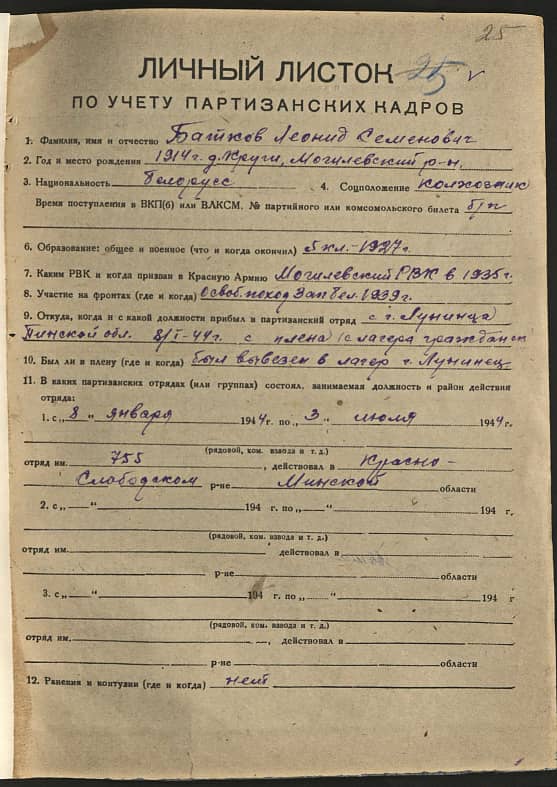 25
ЛИЧНЫЙ ЛИСТОК 25 v
ПО УЧЕТУ ПАРТИЗАНСКИХ КАДРОВ
1. Фамилия, имя и отчество Батков Леонид Семенович
2. Год и место рождения 1914 г. д. Круги, Могилевский р-н.
3. Национальность белорусс 4. Соцположение колхозник
Время поступления в ВКП(б) или ВЛКСМ. № партийного или комсомольского билета б/п
6. Образование: общее и военное (что и когда окончил) 5 кл. - 1927 г.
7. Каким РВК и когда призван в Красную Армию Могилевский РВК в 1935 г.
8. Участие на фронтах (где и когда) Освоб. поход Зап Бел. 1939 г.
9. Откуда, когда и с какой должности прибыл в партизанский отряд с г. Лунинца
Пинской обл. 8/I-44 г. с плена (с лагера граждан
10. Был ли в плену (где и когда) был вывезен в лагер г. Лунинец
11. В каких партизанских отрядах (или группах) состоял, занимаемая должность и район действия
отряда:
1. с „ 8 “ января 1944 г. по „ 3 “ июля 1944 г.
(рядовой, ком. взвода и т. д.)
отряд им. 755, действовал в Красно-
Слободском р-не Минской области
2. с „ “ 194 г. по „ “ 194 г.
(рядовой, ком. взвода и т. д.)
отряд им. действовал в
р-не области
3. с „ “ 194 г. по „ “ 194 г
(рядовой, ком. взвода и т. д.)
отряд им. , действовал в
р-не области
12. Ранения и контузии (где и когда) нет